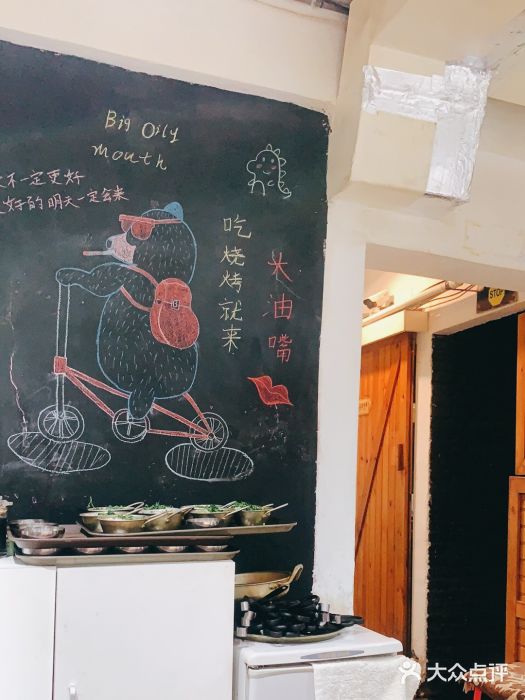 Big Oily
Mouth
不一定更好
好的明天一定会来
吃烧烤就来
大油嘴
STOP
大众点评